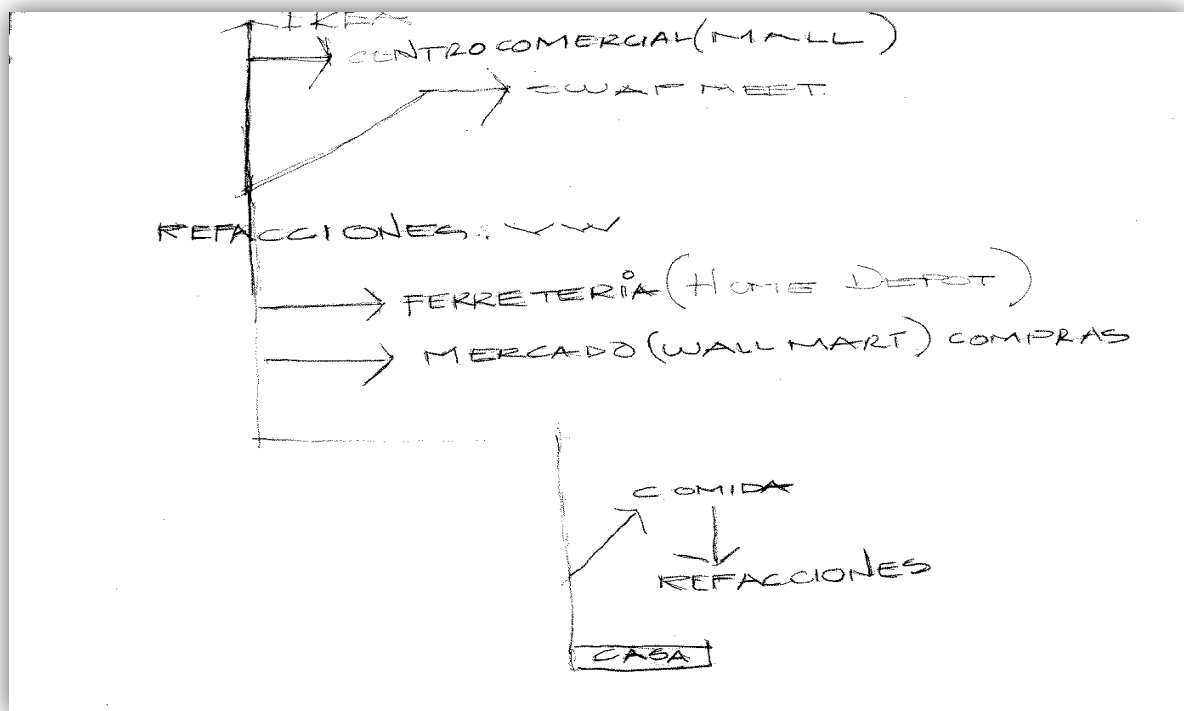 IKEA
CENTRO COMERCIAL (MALL)
SWAP MEET.
REFACCIONES: VW
FERRETERIA (HOME DEPOT)
MERCADO (WALL MART) COMPRAS
COMIDA
REFACCIONES
CASA